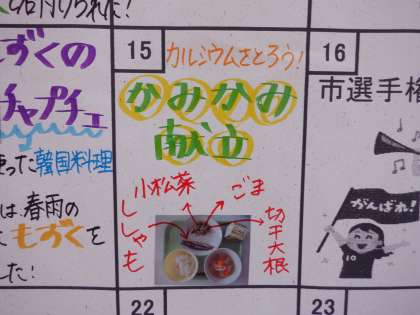 られた!
ずくの
チャプチェ
った韓国料理
は春雨の
もずくを
した!
15
カルシウムをとろう!
かみかみ
献立
小松菜
ごま
ししゃも
切干大根
16
市選手権
がんばれ!
10
22
23